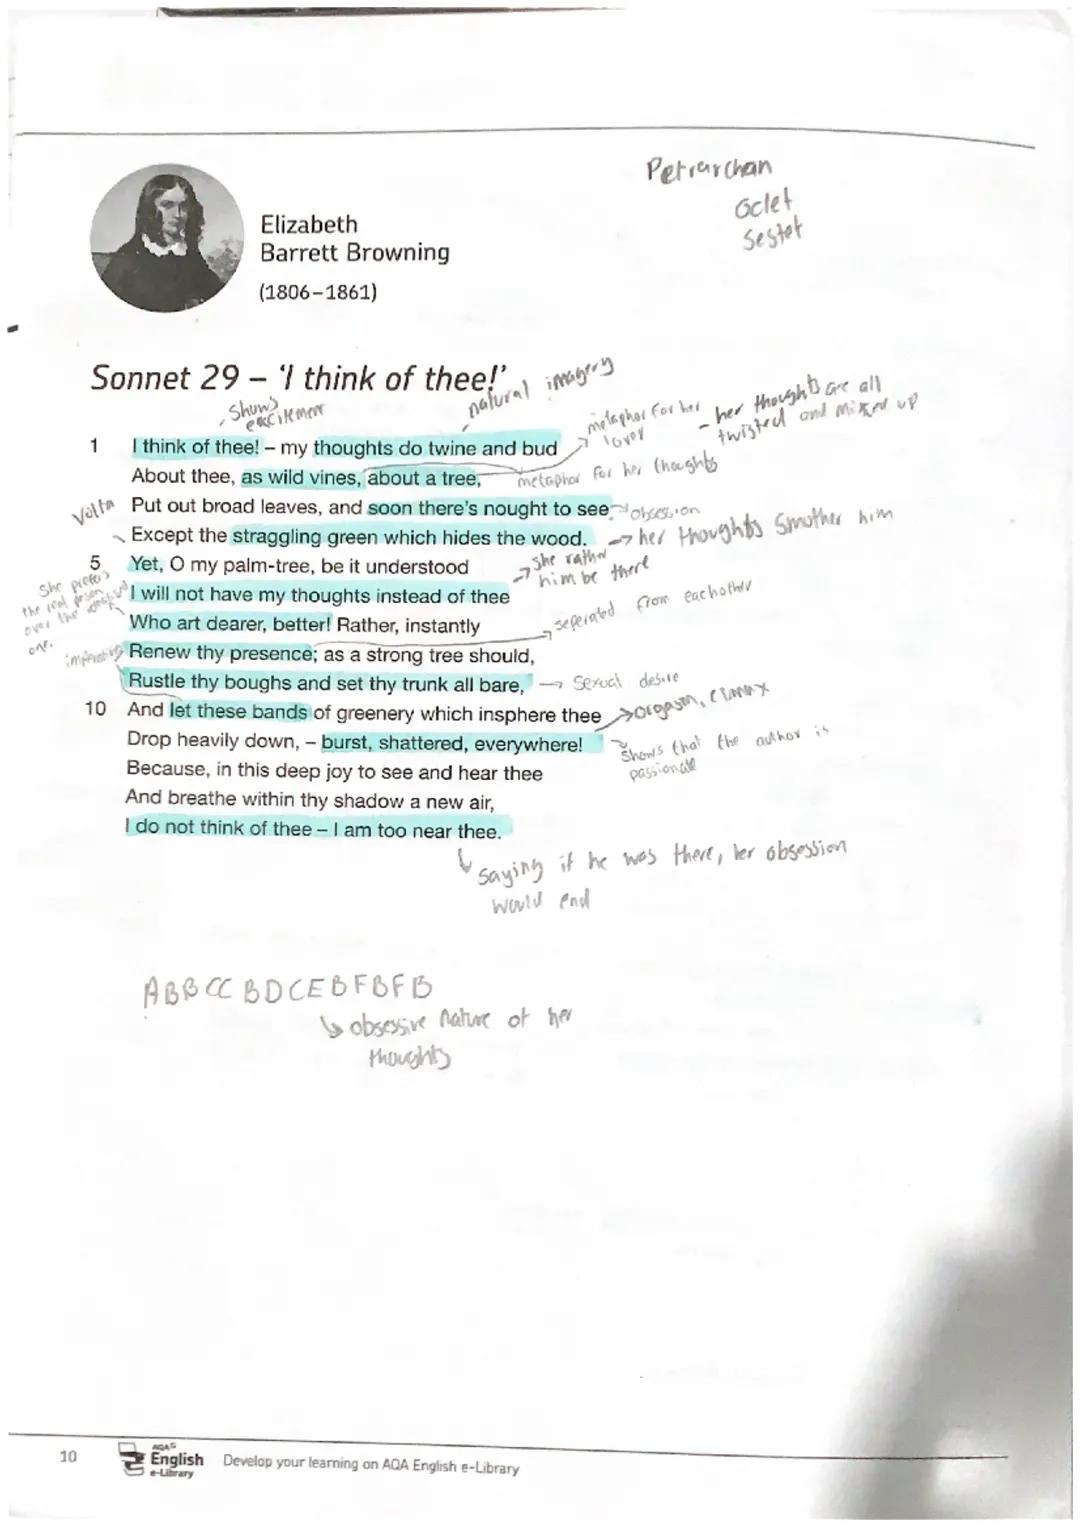 Petrarchan
Oclet
Sestet
Elizabeth
Barrett Browning
(1806–1861)
Sonnet 29 – 'I think of thee!'
natural imagery
Shows
excitement
metaphor for her
lover
- her thoughts are all
twisted and mixed up
1 I think of thee! – my thoughts do twine and bud
About thee, as wild vines, about a tree,
metaphor for her thoughts
Volta
Put out broad leaves, and soon there's nought to see
obsession
Except the straggling green which hides the wood.
her thoughts smother him
5 Yet, O my palm-tree, be it understood
she rather
him be there
She prefers
the real person
over the idealised
one.
I will not have my thoughts instead of thee
Who art dearer, better! Rather, instantly
seperated from eachother
imperative
Renew thy presence; as a strong tree should,
Rustle thy boughs and set thy trunk all bare,
Sexual desire
10 And let these bands of greenery which insphere thee
orgasm, climax
Drop heavily down, – burst, shattered, everywhere!
Shows that the author is
passionate
Because, in this deep joy to see and hear thee
And breathe within thy shadow a new air,
I do not think of thee – I am too near thee.
Saying if he was there, her obsession
would end
ABBCCBDCEBFBFB
obsessive nature of her
thoughts
10
AQA
English
e-Library
Develop your learning on AQA English e-Library